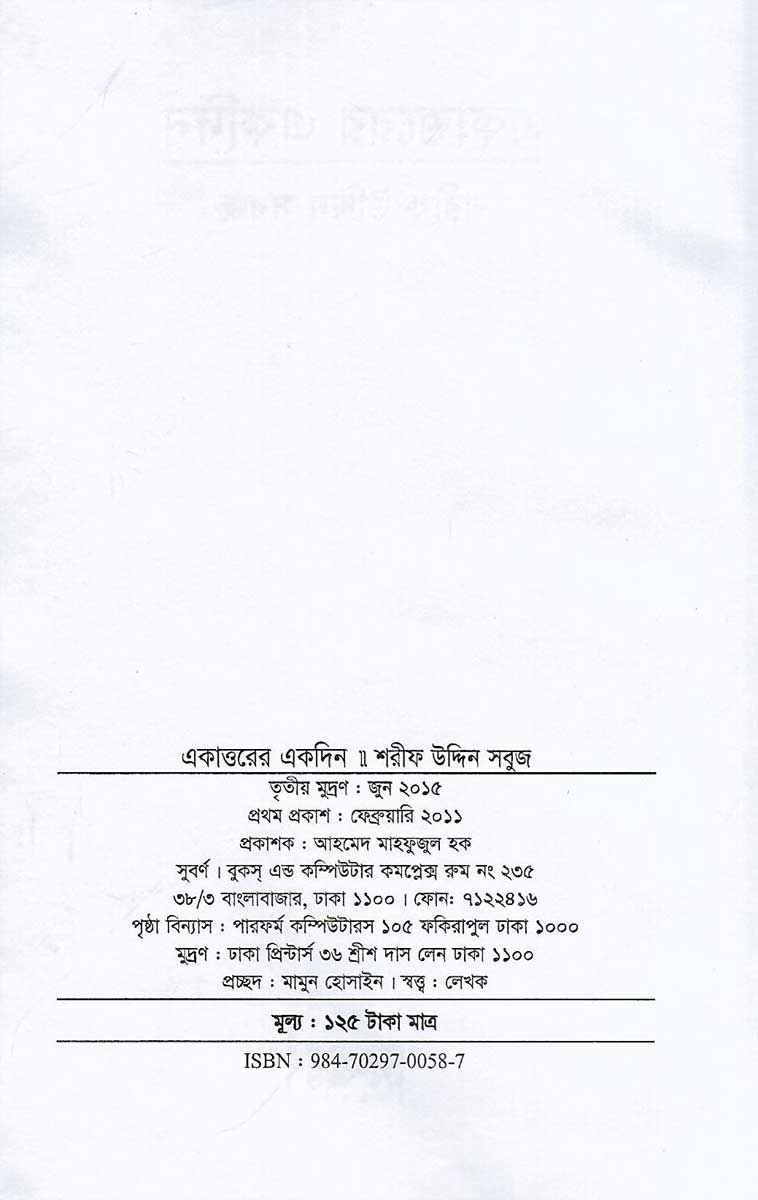 একাত্তরের একদিন ॥ শরীফ উদ্দিন সবুজ
তৃতীয় মুদ্রণ : জুন ২০১৫
প্রথম প্রকাশ : ফেব্রুয়ারি ২০১১
প্রকাশক : আহমেদ মাহফুজুল হক
সুবর্ণ । বুকস্ এন্ড কম্পিউটার কমপ্লেক্স রুম নং ২৩৫
৩৮/৩ বাংলাবাজার, ঢাকা ১১০০ । ফোন: ৭১২২৪১৬
পৃষ্ঠা বিন্যাস : পারফর্ম কম্পিউটারস ১০৫ ফকিরাপুল ঢাকা ১০০০
মুদ্রণ : ঢাকা প্রিন্টার্স ৩৬ শ্রীশ দাস লেন ঢাকা ১১০০
প্রচ্ছদ : মামুন হোসাইন । স্বত্ত্ব : লেখক
মূল্য : ১২৫ টাকা মাত্র
ISBN : 984-70297-0058-7